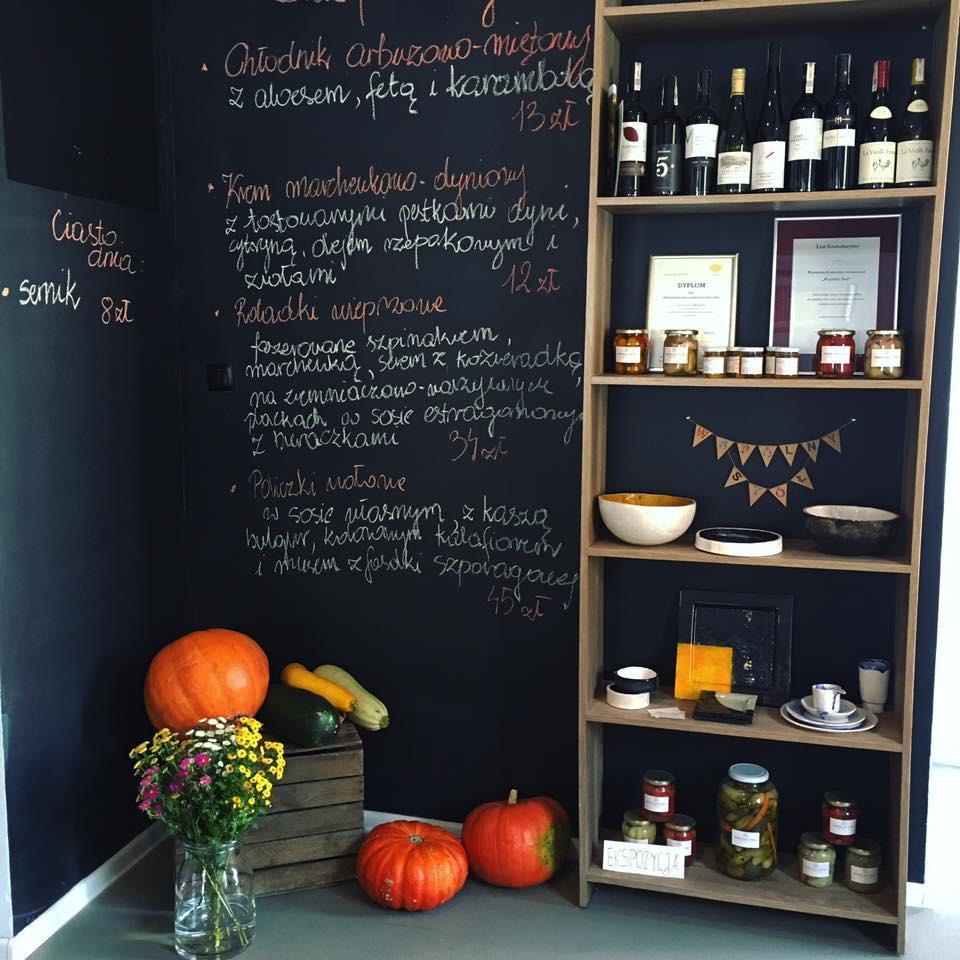 Chłodnik arbuzowo-miętowy
z aloesem, fetą i karambolą
13 zł
Krem marchewkowo-dyniowy
z tostowanymi pestkami dyni,
cytryną, olejem rzepakowym i
ziołami
12 zł
Roladki wieprzowe
faszerowane szpinakiem,
marchewką, serem z kozieradką,
na ziemniaczano-warzywnych
plackach w sosie estragonowym
z buraczkami
34 zł
Policzki wołowe
w sosie własnym z kaszą
bulgur, kalafiorem
i musem z fasolki szparagowej
45 zł
Ciasto
dnia:
sernik
8 zł
5
La Vieille Ferme
La Vieille Ferme
DYPLOM
List Gratulacyjny
WSPÓLNY
STÓŁ
EKSPOZYCJA